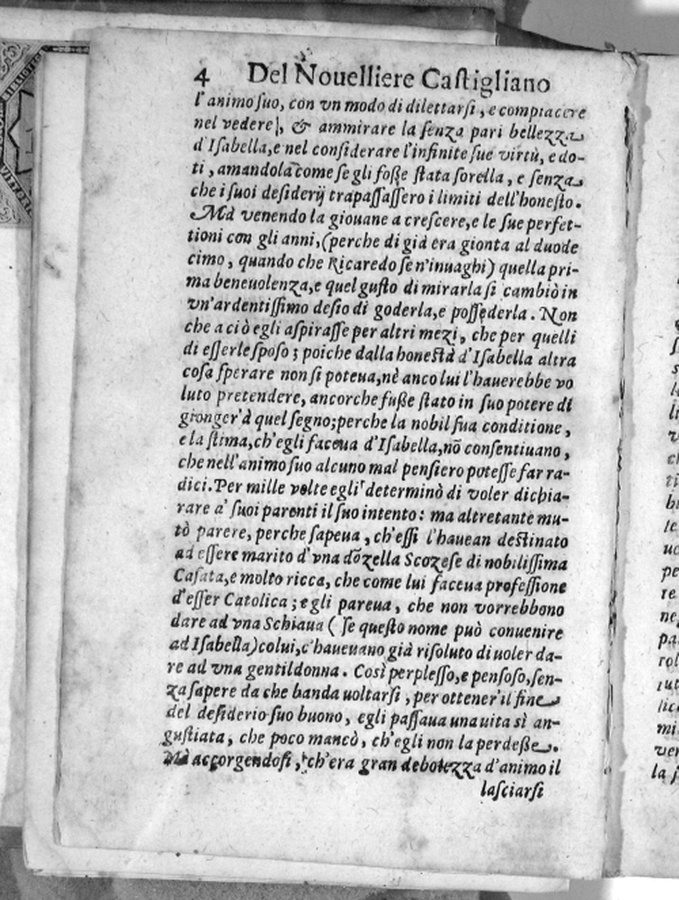 4 Del Nouelliere Castigliano
l'animo suo, con vn modo di dilettarsi, e compiacere
nel vedere, & ammirare la senza pari bellezza
d'Isabella, e nel considerare l'infinite sue virtù, e do-
ti, amandola come se gli foße stata sorella, e senza
che i suoi desiderij trapassassero i limiti dell'honesto.
Mà venendo la giouane a crescere, e le sue perfet-
tioni con gli anni, (perche di già era gionta al duode
cimo, quando che Ricaredo se n'inuaghi) quella pri-
ma beneuolenza, e quel gusto di mirarla si cambiò in
vn'ardentissimo desio di goderla, e possederla. Non
che a ciò egli aspirasse per altri mezi, che per quelli
di esserle sposo; poiche dalla honestà d'Isabella altra
cosa sperare non si poteua, nè anco lui l'hauerebbe vo
luto pretendere, ancorche fuße stato in suo potere di
gionger'à quel segno; perche la nobil sua conditione,
e la stima, ch'egli faceua d'Isabella, nõ consentiuano,
che nell'animo suo alcuno mal pensiero potesse far ra-
dici. Per mille volte egli determinò di voler dichia-
rare a' suoi parenti il suo intento: ma altretante mu-
tò parere, perche sapeua, ch'essi l'hauean destinato
ad essere marito d'vna dõzella Scozese di nobilissima
Casata, e molto ricca, che come lui faceua professione
d'esser Catolica; e gli pareua, che non vorrebbono
dare ad vna Schiaua (se questo nome può conuenire
ad Isabella) colui, c'haueuano già risoluto di uoler da-
re ad vna gentildonna. Così perplesso, e pensoso, sen-
za sapere da che banda uoltarsi, per ottener'il fine
del desiderio suo buono, egli passaua una uita sì an-
gustiata, che poco mancò, ch'egli non la perdeße.
Mà accorgendosi, ch'era gran debolezza d'animo il
lasciarsi